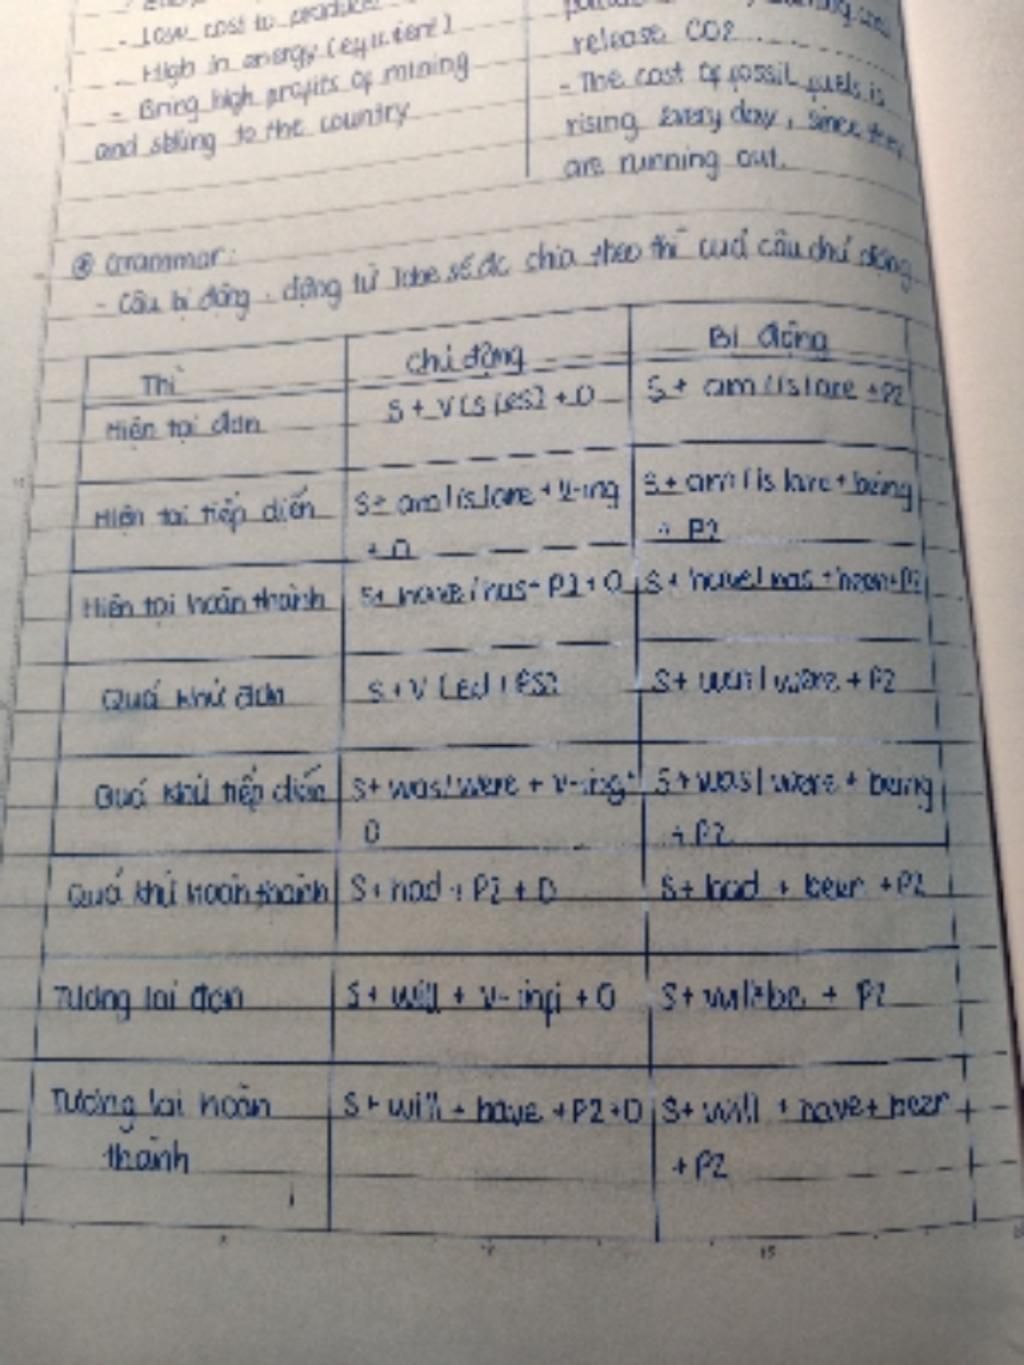 - Low cost to produce.
- High in energy (efficient)
- Bring high profits of mining
and selling to the country
release CO2
- The cost of fossil fuels is
rising every day, since they
are running out.
⊛ Grammar:
- Câu bị động, động từ tobe sẽ đc chia theo thì cuả câu chủ động
Thì | Chủ động | Bị động
Hiện tại đơn | S + V(s/es) + O | S + am/is/are + P2
Hiện tại tiếp diễn | S + am/is/are + V-ing | S + am/is/are + being
+ O | + P2
Hiện tại hoàn thành | S + have/has + P2 + O | S + have/has + been + P2
Quá khứ đơn | S + V | S + was/were + P2
Quá khứ tiếp diễn | S + was/were + V-ing + | S + was/were + being
O | + P2
Quá khứ hoàn thành | S + had + P2 + O | S + had + been + P2
Tương lai đơn | S + will + V-infi + O | S + will + be + P2
Tương lai hoàn | S + will + have + P2 + O | S + will + have + been
thành | + P2